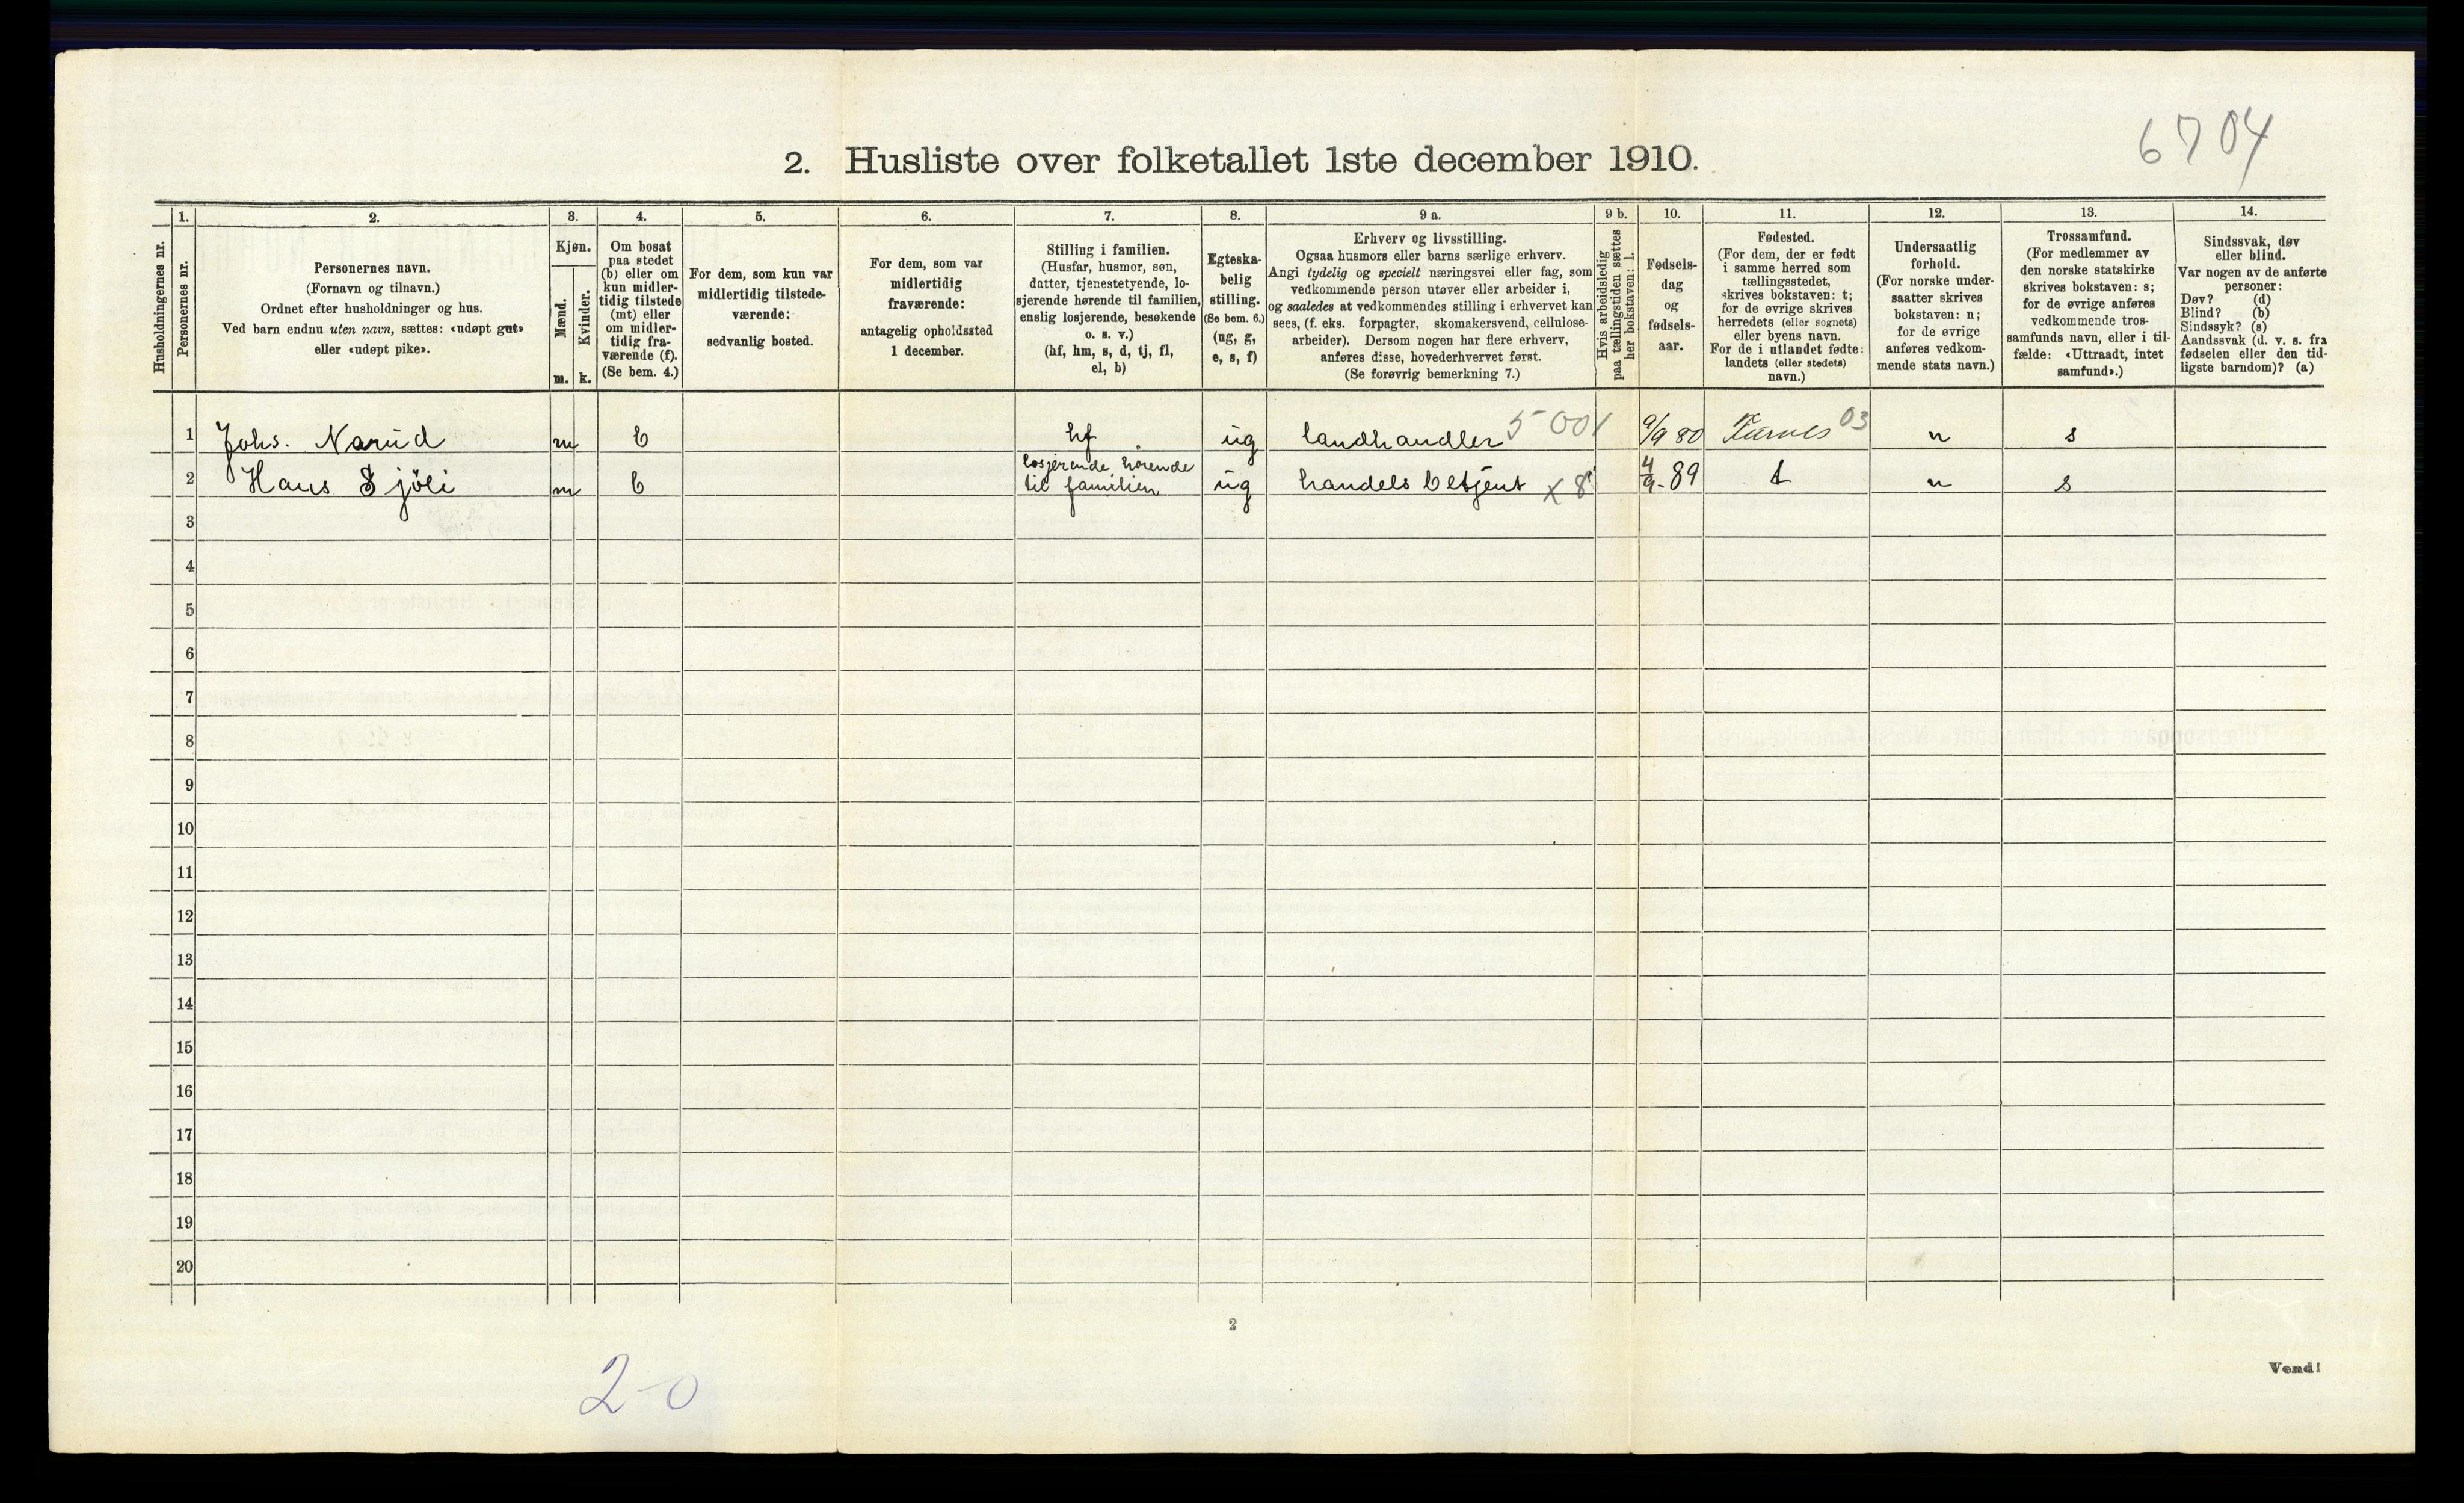 6704
2. Husliste over folketallet 1ste december 1910.
Husholdningernes nr.
1.
Personernes nr.
2.
Personernes navn.
(Fornavn og tilnavn.)
Ordnet efter husholdninger og hus.
Ved barn endnu uten navn, sættes: «udøpt gut»
eller «udøpt pike».
3.
Kjøn.
Mænd.
m.
Kvinder.
k.
4.
Om bosat
paa stedet
(b) eller om
kun midler-
tidig tilstede
(mt) eller
om midler-
tidig fra-
værende (f).
(Se bem. 4.)
5.
For dem, som kun var
midlertidig tilstede-
værende:
sedvanlig bosted.
6.
For dem, som var
midlertidig
fraværende:
antagelig opholdssted
1 december.
7.
Stilling i familien.
(Husfar, husmor, søn,
datter, tjenestetyende, lo-
sjerende hørende til familien,
enslig losjerende, besøkende
o. s. v.)
(hf, hm, s, d, tj, fl,
el, b)
8.
Egteska-
belig
stilling.
(Se bem. 6.)
(ug, g,
e, s, f)
9 a.
Erhverv og livsstilling.
Ogsaa husmors eller barns særlige erhverv.
Angi tydelig og specielt næringsvei eller fag, som
vedkommende person utøver eller arbeider i,
og saaledes at vedkommendes stilling i erhvervet kan
sees, (f. eks. forpagter, skomakersvend, cellulose-
arbeider). Dersom nogen har flere erhverv,
anføres disse, hovederhvervet først.
(Se forøvrig bemerkning 7.)
9 b.
Hvis arbeidsledig
paa tællingstiden sættes
her bokstaven: l.
10.
Fødsels-
dag
og
fødsels-
aar.
11.
Fødested.
(For dem, der er født
i samme herred som
tællingsstedet,
skrives bokstaven: t;
for de øvrige skrives
herredets (eller sognets)
eller byens navn.
For de i utlandet fødte:
landets (eller stedets)
navn.)
12.
Undersaatlig
forhold.
(For norske under-
saatter skrives
bokstaven: n;
for de øvrige
anføres vedkom-
mende stats navn.)
13.
Trossamfund.
(For medlemmer av
den norske statskirke
skrives bokstaven: s;
for de øvrige anføres
vedkommende tros-
samfunds navn, eller i til-
fælde: «Uttraadt, intet
samfund».)
14.
Sindssvak, døv
eller blind.
Var nogen av de anførte
personer:
Døv? (d)
Blind? (b)
Sindssyk? (s)
Aandssvak (d. v. s. fra
fødselen eller den tid-
ligste barndom)? (a)
1 Johs. Narud m b hf ug landhandler 5001 9/9 80 03 n s
2 Hans Sjöli m b losjerende hørende til familien ug handelsbetjent x 8 4/9-89 t n s
3
4
5
6
7
8
9
10
11
12
13
14
15
16
17
18
19
20
2
2-0
Vend!